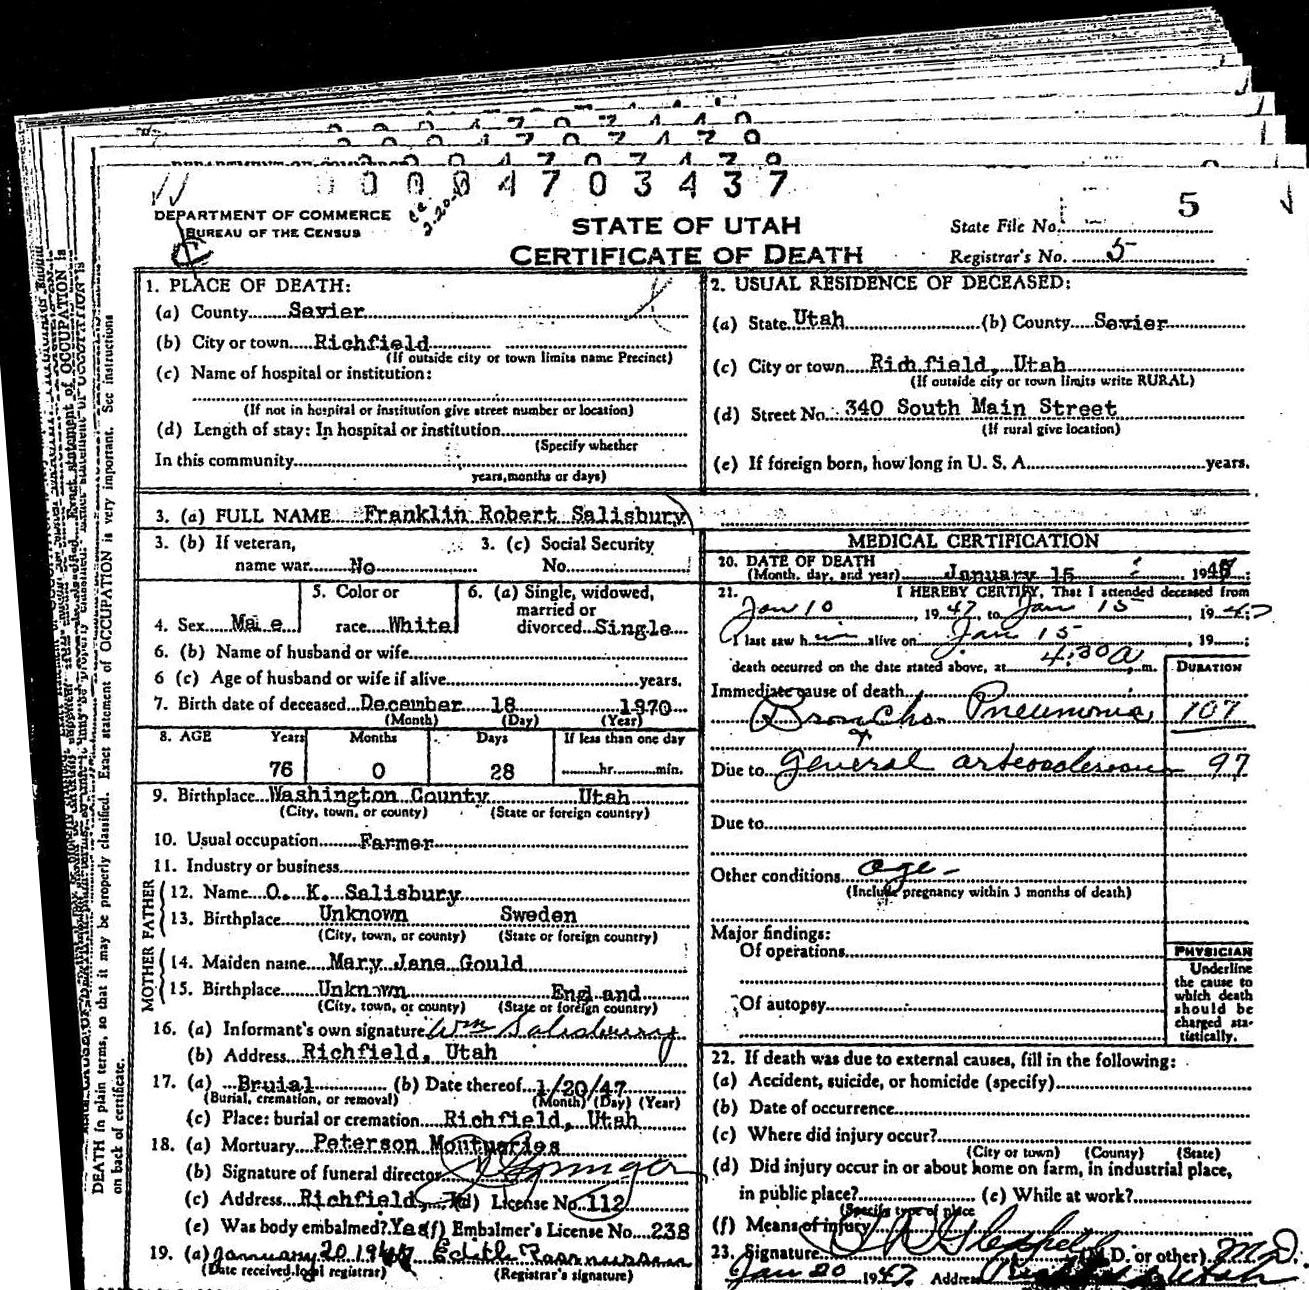 0 0 0 4 7 0 3 4 3 7
DEPARTMENT OF COMMERCE
BUREAU OF THE CENSUS
STATE OF UTAH
CERTIFICATE OF DEATH
State File No. 5
Registrar's No. 5
1. PLACE OF DEATH:
(a) County Sevier
(b) City or town Richfield
(If outside city or town limits name Precinct)
(c) Name of hospital or institution:
(If not in hospital or institution give street number or location)
(d) Length of stay: In hospital or institution
(Specify whether
In this community
years, months or days)
2. USUAL RESIDENCE OF DECEASED:
(a) State Utah (b) County Sevier
(c) City or town Richfield, Utah
(If outside city or town limits write RURAL)
(d) Street No. 340 South Main Street
(If rural give location)
(e) If foreign born, how long in U. S. A. years.
3. (a) FULL NAME Franklin Robert Salisbury
3. (b) If veteran, name war No
3. (c) Social Security No.
4. Sex Ma e
5. Color or race White
6. (a) Single, widowed, married or divorced Single
6. (b) Name of husband or wife
6 (c) Age of husband or wife if alive years.
7. Birth date of deceased December 18 1970
(Month) (Day) (Year)
8. AGE Years Months Days If less than one day
76 0 28 hr. min.
9. Birthplace Washington County Utah
(City, town, or county) (State or foreign country)
10. Usual occupation Farmer
11. Industry or business
FATHER
12. Name O. K. Salisbury
13. Birthplace Unknown Sweden
(City, town, or county) (State or foreign country)
MOTHER
14. Maiden name Mary Jane Gould
15. Birthplace Unknown England
(City, town, or county) (State or foreign country)
16. (a) Informant's own signature Wm Salisbury
(b) Address Richfield, Utah
17. (a) Bruial (b) Date thereof 1/20/47
(Burial, cremation, or removal) (Month) (Day) (Year)
(c) Place: burial or cremation Richfield, Utah
18. (a) Mortuary Peterson Montuaries
(b) Signature of funeral director
(c) Address Richfield, (d) License No. 112
(e) Was body embalmed? Yes (f) Embalmer's License No. 238
19. (a) January 20 1947 Edith Rasmussen
(Date received local registrar) (Registrar's signature)
MEDICAL CERTIFICATION
20. DATE OF DEATH
(Month, day, and year) January 15 1947
21. I HEREBY CERTIFY, That I attended deceased from
Jan 10, 1947, to Jan 15, 1947
I last saw him alive on Jan 15, 19
death occurred on the date stated above, at 4:30 a m.
DURATION
Immediate cause of death
Broncho Pneumonia 107
Due to general arteosclerosis 97
Due to
Other conditions age
(Include pregnancy within 3 months of death)
Major findings:
Of operations
Of autopsy
PHYSICIAN
Underline
the cause to
which death
should be
charged sta-
tistically.
22. If death was due to external causes, fill in the following:
(a) Accident, suicide, or homicide (specify)
(b) Date of occurrence
(c) Where did injury occur?
(City or town) (County) (State)
(d) Did injury occur in or about home on farm, in industrial place,
in public place? (e) While at work?
(Specify type of place
(f) Means of injury
23. Signature (M.D. or other) M.D.
Jan 20 1947 Address Utah
DEATH in plain terms, so that it may be properly classified. Exact statement of OCCUPATION is very important. See instructions
on back of certificate.